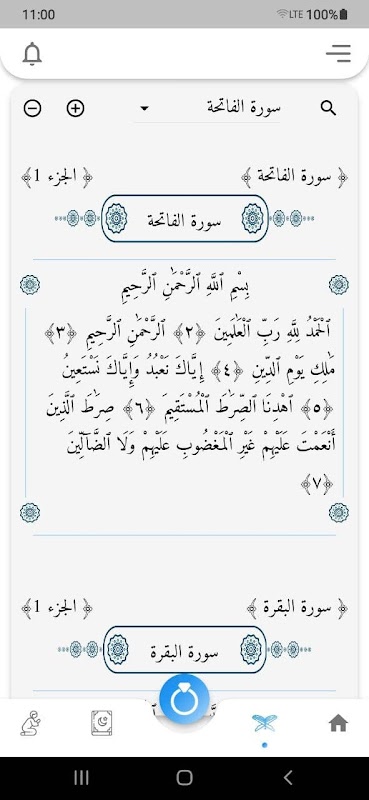 11:00 LTE 100%
سورة الفاتحة
﴿ سورة الفاتحة ﴾ ﴿ الجزء 1 ﴾
سورة الفاتحة
بِسْمِ ٱللَّهِ ٱلرَّحْمَٰنِ ٱلرَّحِيمِ
ٱلْحَمْدُ لِلَّهِ رَبِّ ٱلْعَٰلَمِينَ ﴿٢﴾ ٱلرَّحْمَٰنِ ٱلرَّحِيمِ ﴿٣﴾
مَٰلِكِ يَوْمِ ٱلدِّينِ ﴿٤﴾ إِيَّاكَ نَعْبُدُ وَإِيَّاكَ نَسْتَعِينُ
﴿٥﴾ ٱهْدِنَا ٱلصِّرَٰطَ ٱلْمُسْتَقِيمَ ﴿٦﴾ صِرَٰطَ ٱلَّذِينَ
أَنْعَمْتَ عَلَيْهِمْ غَيْرِ ٱلْمَغْضُوبِ عَلَيْهِمْ وَلَا ٱلضَّآلِّينَ
﴿٧﴾
﴿ سورة البقرة ﴾ ﴿ الجزء 1 ﴾
سورة البقرة